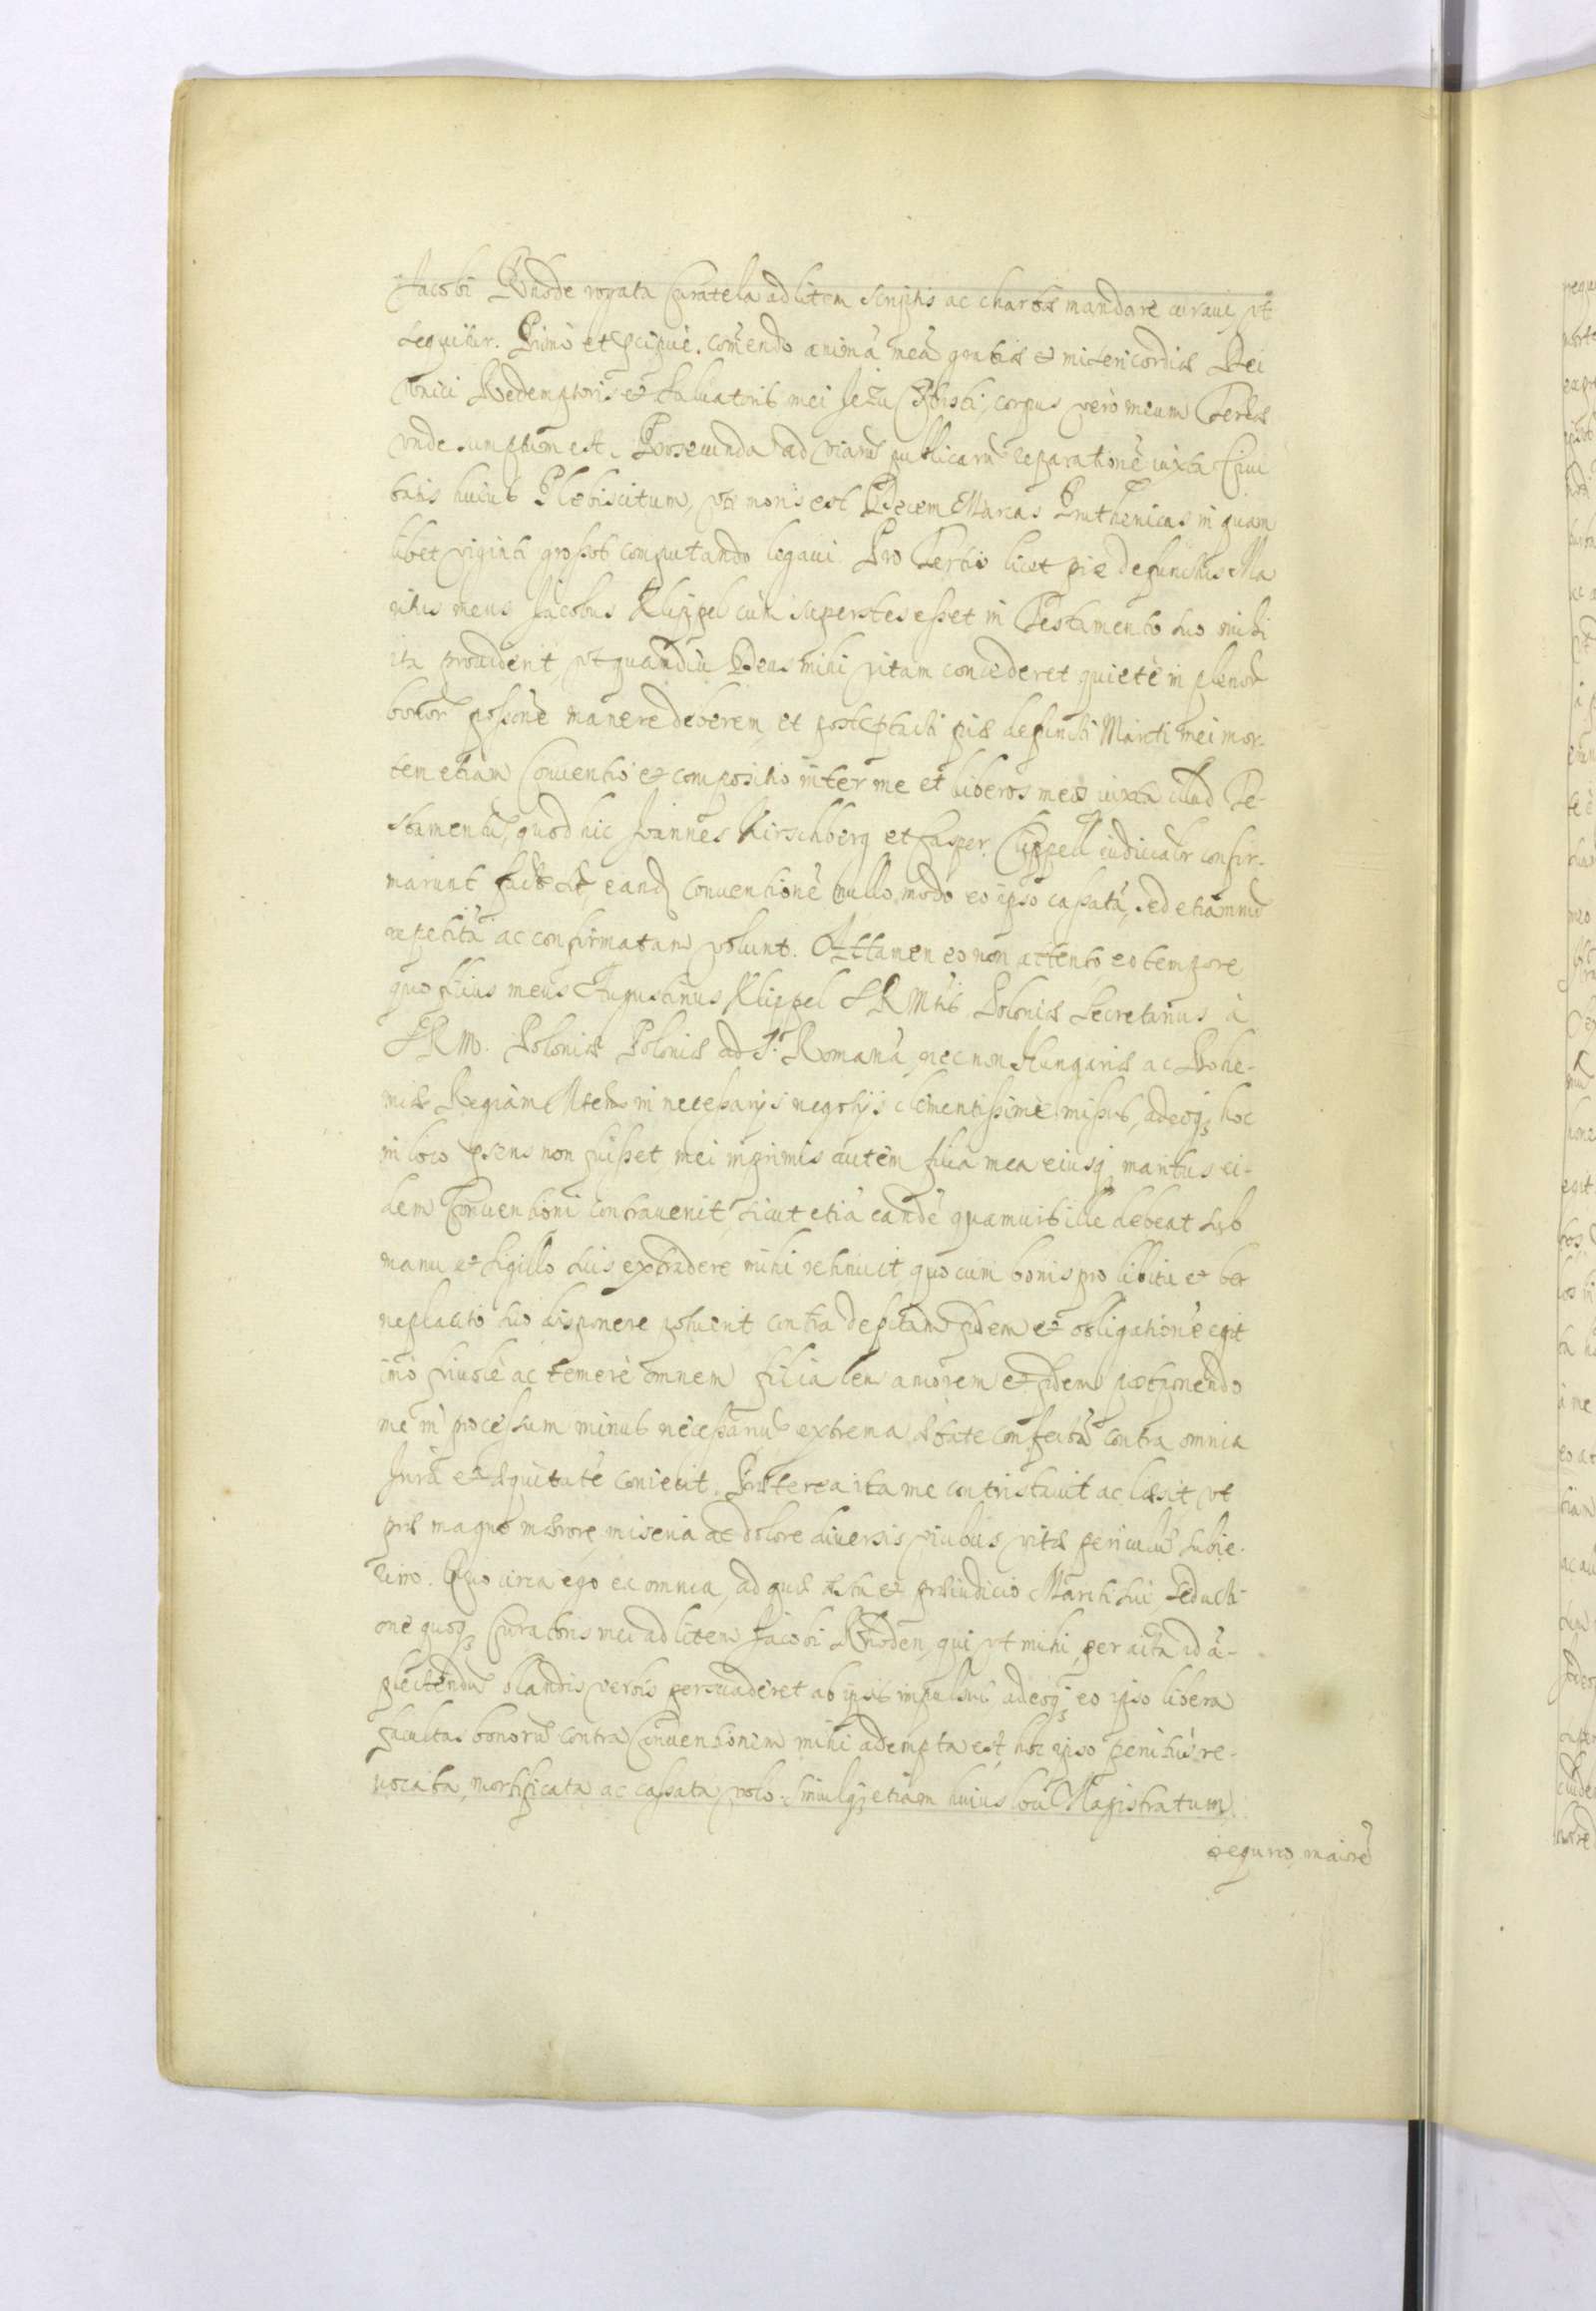 Jacobi Rhode rogata Curatela ad litem scriptis ac chartis mandare curaui, vt
sequitur. Primò et pcipuè. com̃endo animã meã gratiæ et misericordiæ Dei
vnici Redemptoris et Saluatoris mei Jezu Christi, corpus verò meum Terræ
vnde sumptum est. Pro secunda ad viarũ publicarũ reparationẽ iuxta Ciui
tatis huius Plebiscitum, vt moris est Decem Marcas Pruthenicas in quam
libet viginti grossos computando legaui. Pro Tertio licet piè defunctus Ma
ritus meus Jacobus Klippel cùm superstes esset in Testamento suo mihi
ita prouiderit, vt quamdiù Deus mihi vitam concederet quietè in plenior
bonor possõne manere deberem, et post ptacti piè defuncti Mariti mei mor-
tem etiam Conuentio et compositio inter me et liberos meos iuxta illud Te-
stamentũ, quod hic Joannes Hirschberg et Casper Clippell iudicialr confir-
marunt facta sit, eand conuentionẽ nullo modo eo ipso cassatã, sed etiamnũ
repetitã ac confirmatam volunt. Attamen eo non attento eo tempore
quo filius meus Augustinus Klippel S R Mttis Poloniæ Secretarius à
S R M. Poloniæ Poloniæ ad S. Romanã, nec non Hungariæ ac Bohe-
miæ Regiam Mtem in necessarijs negotijs clementissimè missus, adeoq hoc
in loco psens non fuisset, mei inprimis autem filia mea eiusq maritus ei-
dem Conuentioni contrauenit, sicut etiã eandẽ quamuis ille debeat sub
manu et sigillo suis extradere mihi retinuit, quo cum bonis pro libitu et be
neplacito suo disponere potuerit contra depitam fidem et obligationẽ egit
imò friuolè ac temerè omnem filialem amorem et fidem postponendo
me in processum minus necessariũ extrema ætate confectã contra omnia
Jura et æquitatẽ coniecit. Præterea ita me contristauit ac læsit, vt
præ magno mærore, miseria ac dolore diuersis vicibus vitæ periculũ subie-
rim. Quo circa ego ea omnia, ad quæ astu et præiudicio Mariti sui, seducti-
one quoq Curatoris mei ad litem Jacobi Rhoden, qui vt mihi per acta id ã-
plectendũ blandis verbis persuaderet ab ipsis impulsus, adeoq eo ipso libera
facultas bonorũ contra Conuentionem mihi adempta est, hoc ipso penitùs re-
uocata, mortificata ac cassata volo. Simulq etiam huius loci Magistratum